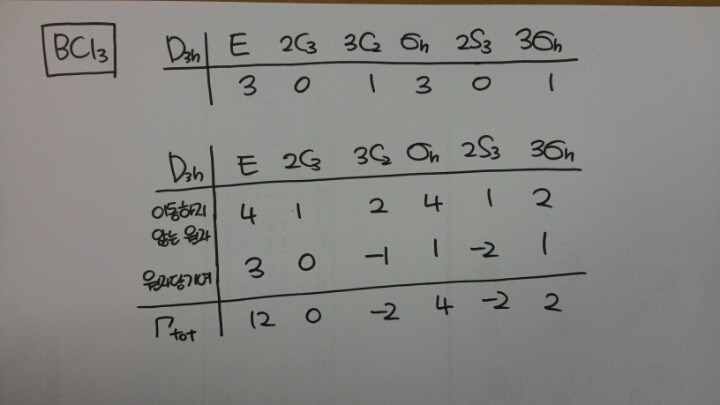 BCl3
D3h E 2C3 3C2 σh 2S3 3σh
3 0 1 3 0 1
D3h E 2C3 3C2 σh 2S3 3σh
이동하지 4 1 2 4 1 2
않는 원자
원자당기여 3 0 -1 1 -2 1
Γtot 12 0 -2 4 -2 2